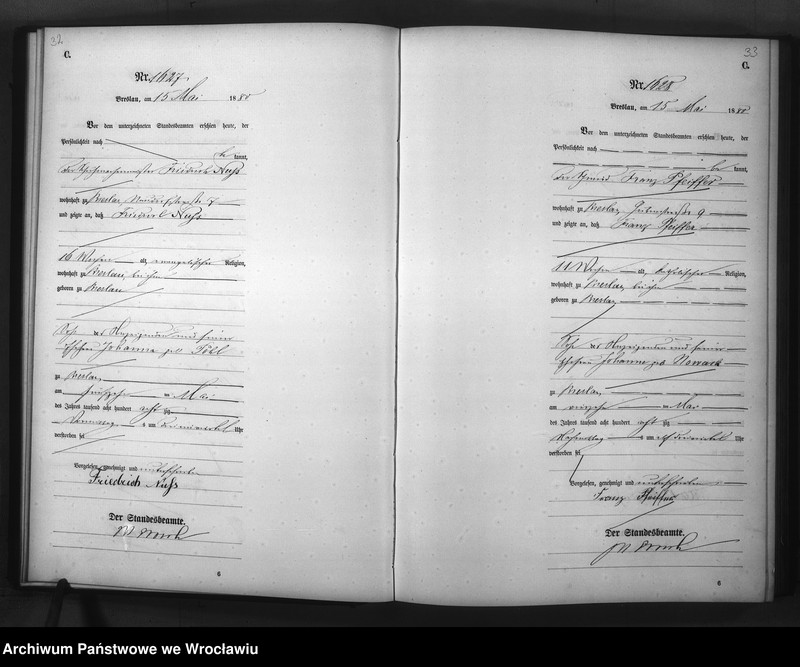 32
C.
Nr. 1627
Breslau, am 15 Mai 1880
Vor dem unterzeichneten Standesbeamten erschien heute, der
Persönlichkeit nach
be kannt,
der Friedrich Nuß
wohnhaft zu Breslau, 7
und zeigte an, daß Friedrich Nuß
16 Wochen alt, evangelischer Religion,
wohnhaft zu Breslau, bei ihm
geboren zu Breslau
des Anzeigenden und seiner
Ehefrau Johanna geb
zu Breslau
am Mai
des Jahres tausend acht hundert acht zig
um Uhr
verstorben sei.
Vorgelesen, genehmigt und unterschrieben
Friedrich Nuß
Der Standesbeamte.
6
33
C.
Nr. 1628
Breslau, am 15 Mai 1880
Vor dem unterzeichneten Standesbeamten erschien heute, der
Persönlichkeit nach
be kannt,
der Franz Pfeiffer
wohnhaft zu Breslau, 9
und zeigte an, daß Franz Pfeiffer
11 Wochen alt, katholischer Religion,
wohnhaft zu Breslau bei ihm
geboren zu Breslau
des Anzeigenden und seiner
Ehefrau Johanna geb Nowack
zu Breslau
am Mai
des Jahres tausend acht hundert acht zig
um Uhr
verstorben sei.
Vorgelesen, genehmigt und unterschrieben
Franz Pfeiffer
Der Standesbeamte.
6
Archiwum Państwowe we Wrocławiu